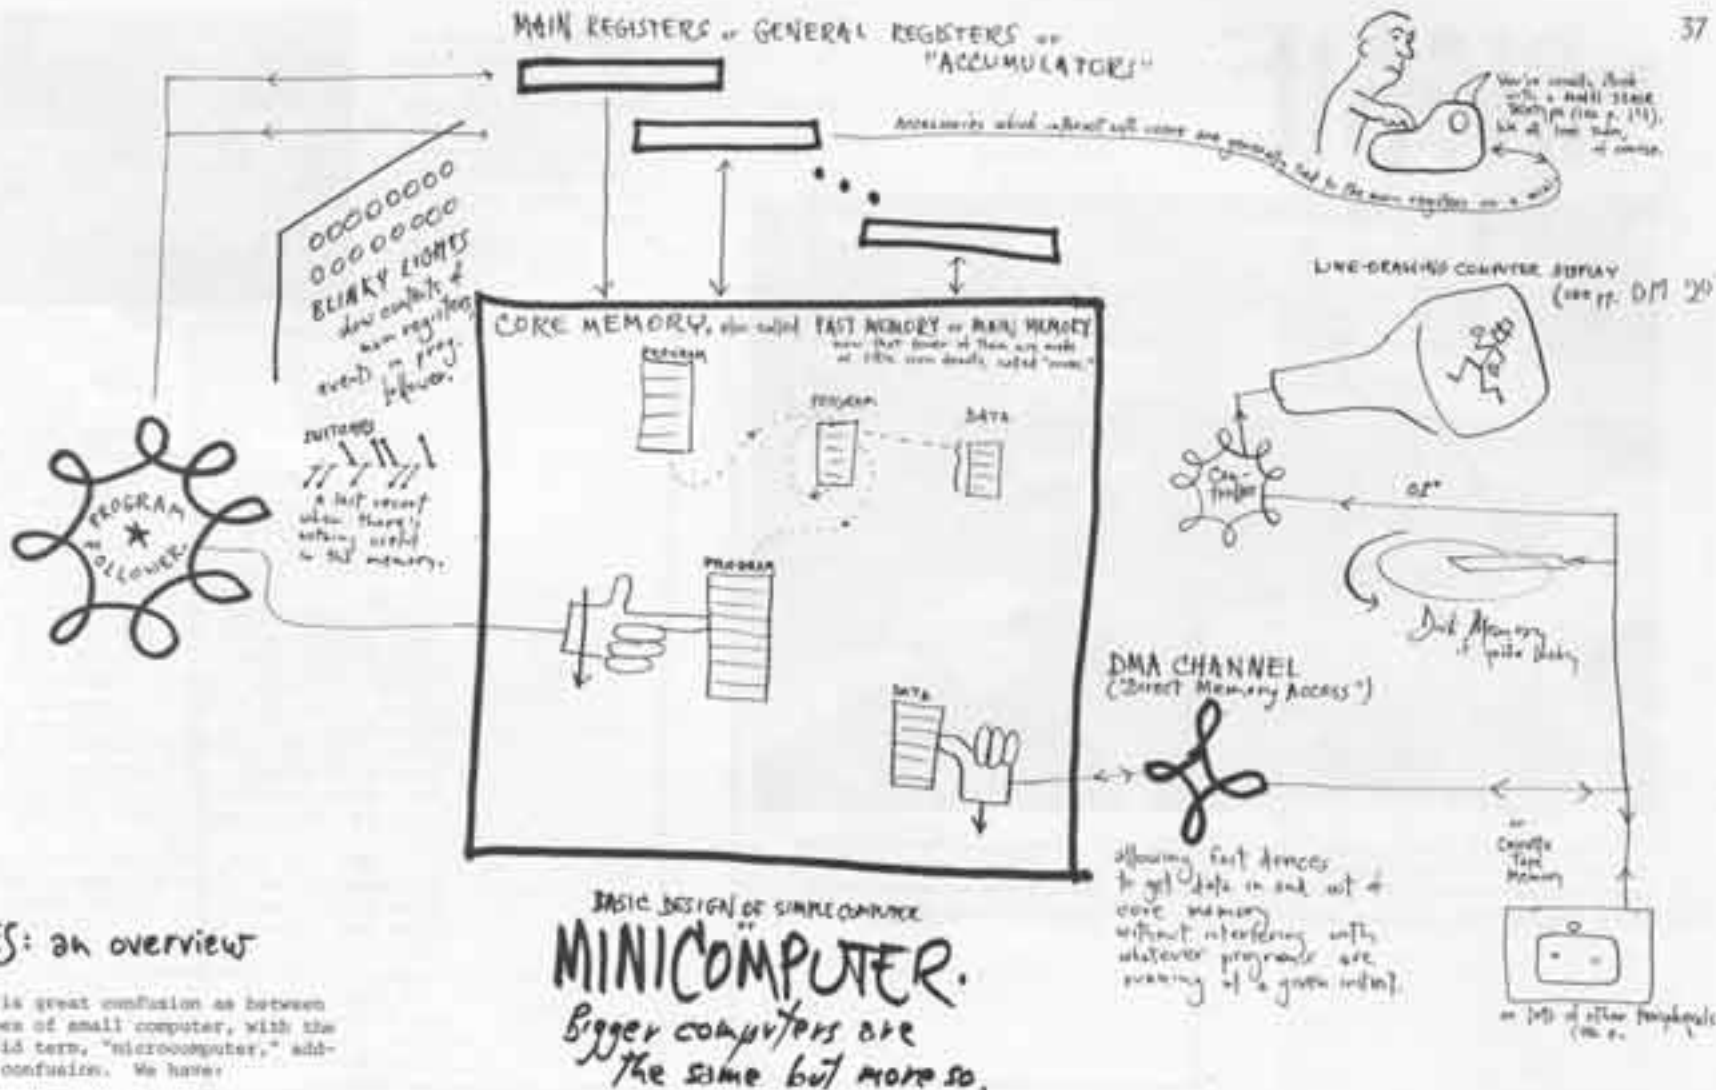 37
MAIN REGISTERS or GENERAL REGISTERS or
"ACCUMULATORS"
You're usually stuck
with a
(see p.
of course.
Accessories which interact with users are generally tied to the main registers
BLINKY LIGHTS
show contents of
main registers,
events in prog.
follower.
SWITCHES
a last resort
when there's
nothing useful
in the memory.
PROGRAM
FOLLOWER.
CORE MEMORY, also called FAST MEMORY or MAIN MEMORY
now that fewer of them are made
of little iron called "cores."
PROGRAM
PROGRAM
DATA
PROGRAM
DATA
LINE-DRAWING COMPUTER DISPLAY
(see pp. DM 20
Con-
troller
or
Disk Memory
DMA CHANNEL
("Direct Memory Access")
allowing fast devices
to get data in and out of
core memory
without interfering with
whatever programs are
running at a given instant.
or
Cassette
Tape
Memory
or lots of other peripherals
(see p.
BASIC DESIGN OF SIMPLE COMPUTER
or
MINICOMPUTER.
Bigger computers are
the same but more so.
S: an overview
is great confusion as between
es of small computer, with the
id term, "microcomputer," add-
confusion. We have: